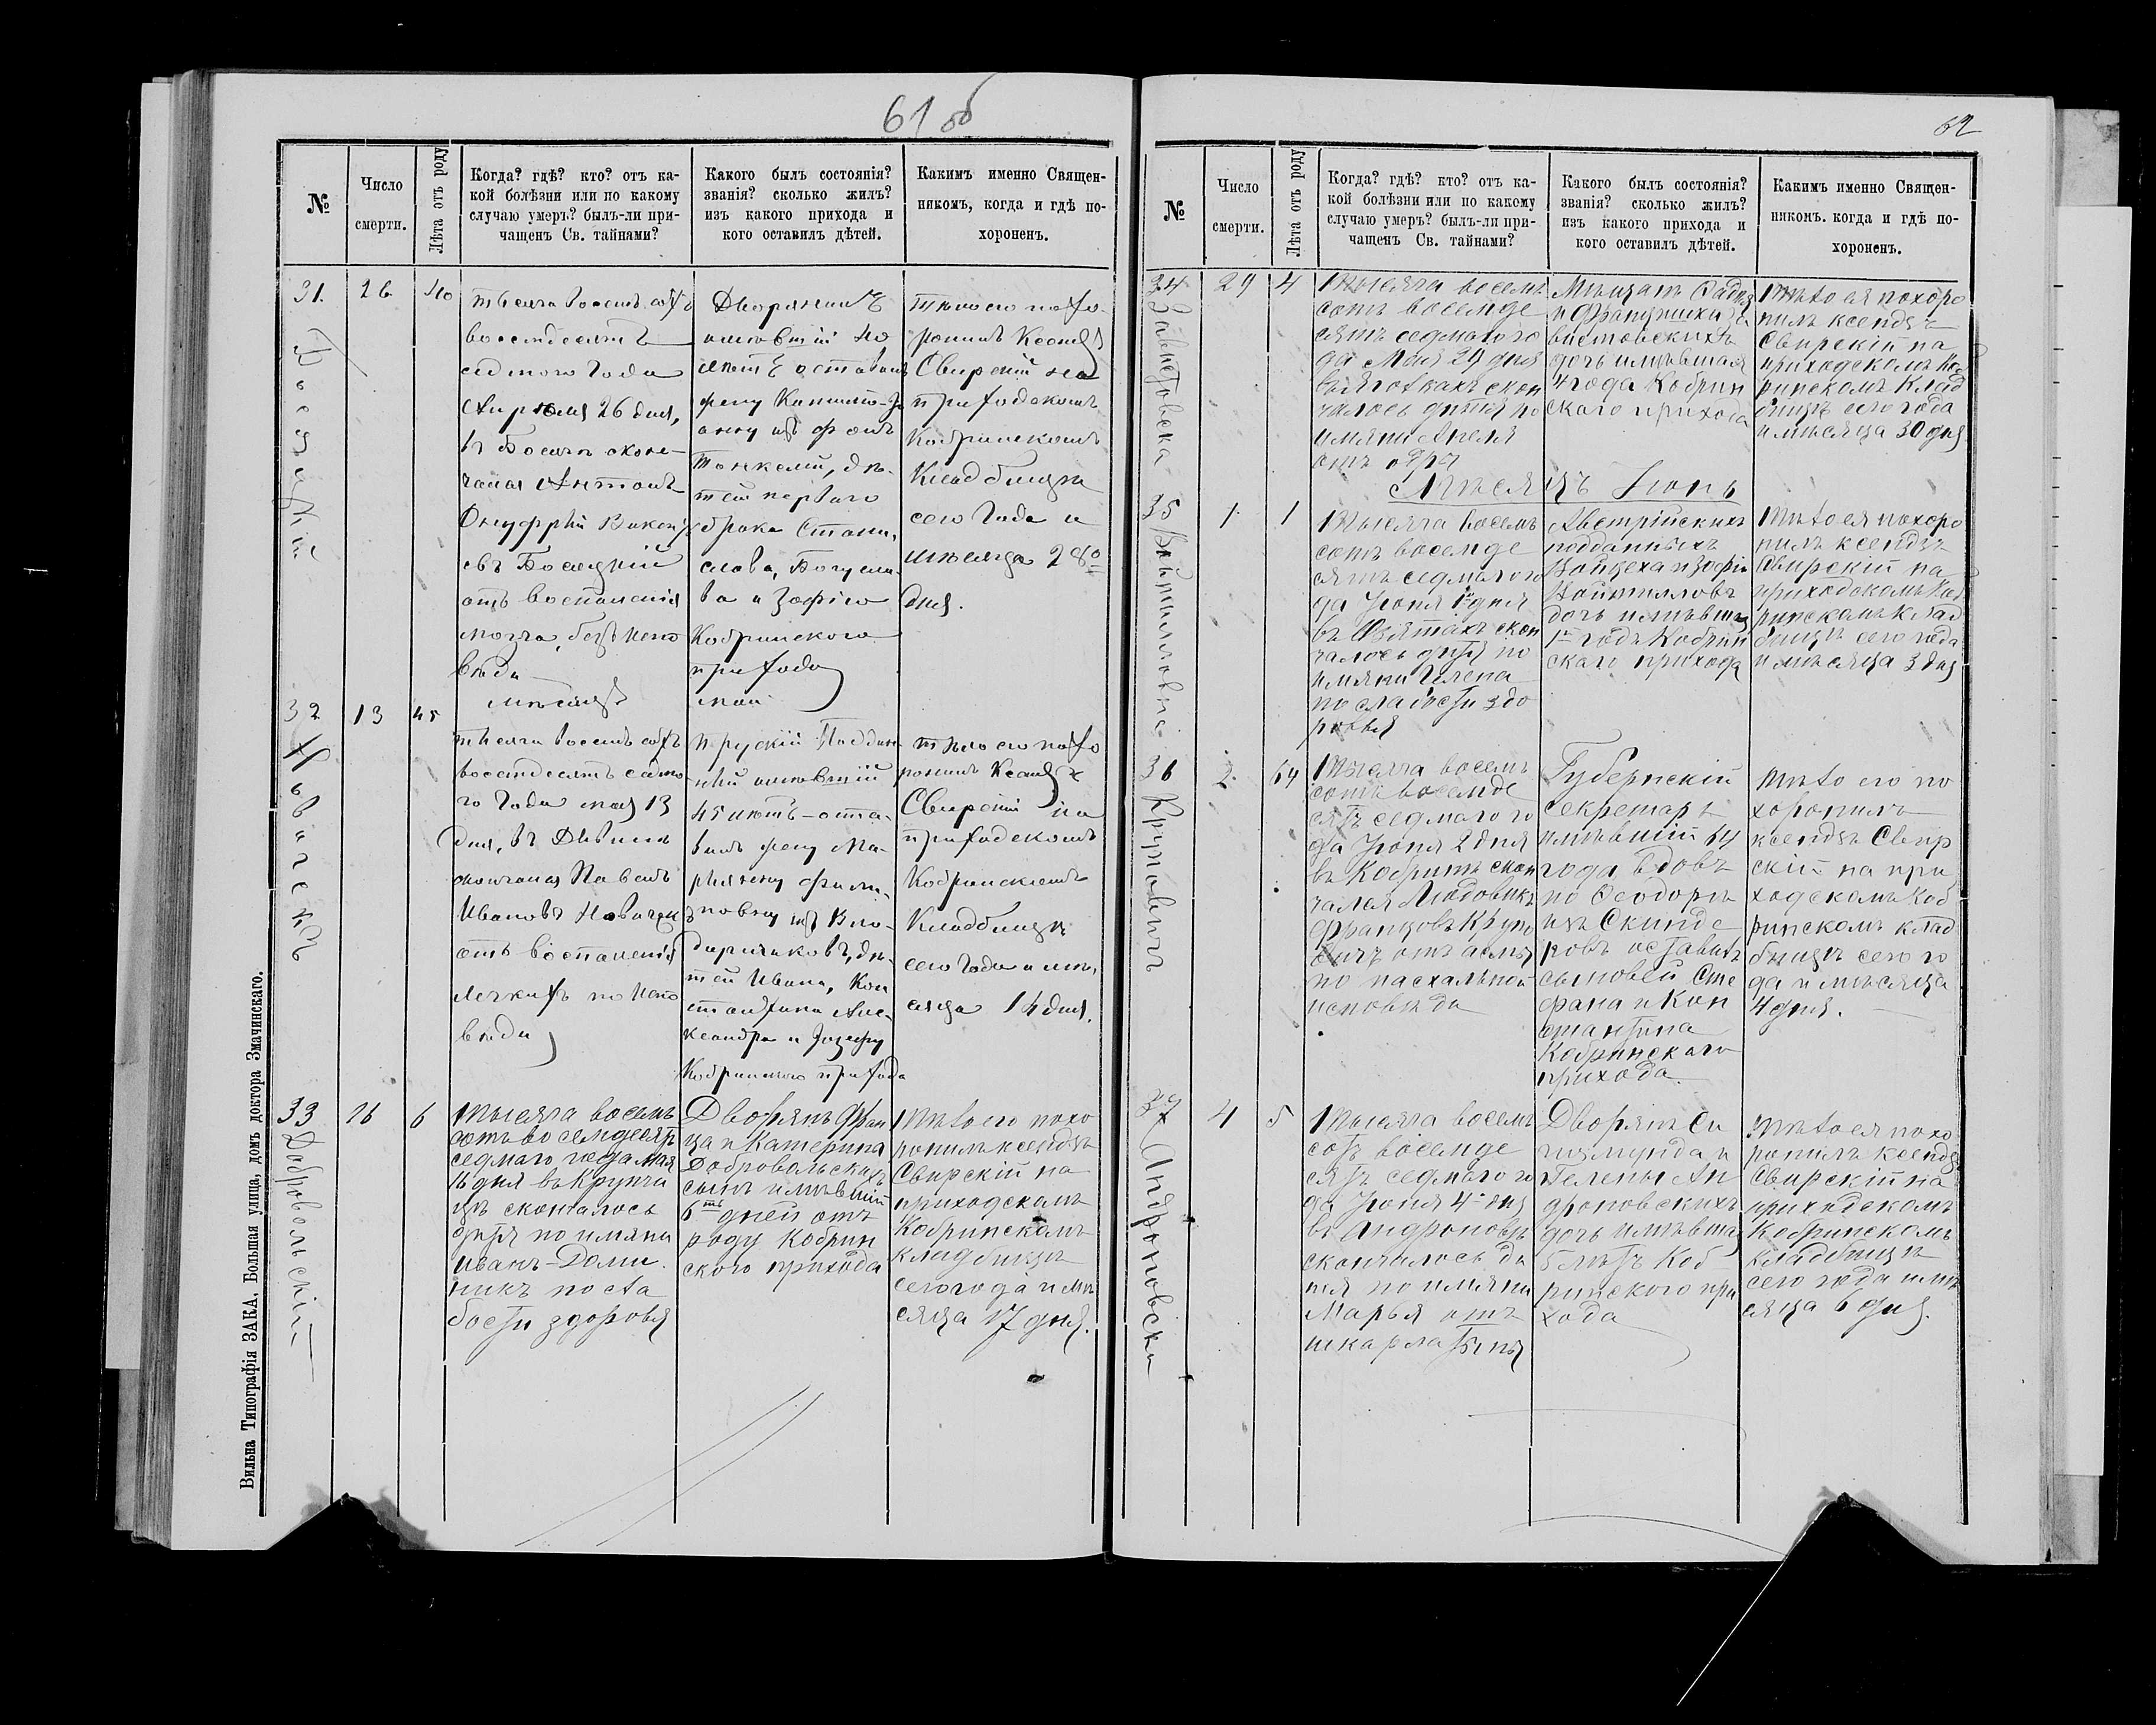 61 об
№
Число
смерти.
Лѣта отъ роду
Когда? гдѣ? кто? отъ ка-
кой болѣзни или по какому
случаю умеръ? былъ-ли при-
чащенъ Св. тайнами?
Какого былъ состоянія?
званія? сколько жилъ?
изъ какого прихода и
кого оставилъ дѣтей.
Какимъ именно Священ-
никомъ, когда и гдѣ по-
хороненъ.
31.
26
40
тысяча восемь сотъ
восемдесятъ
седмого Года
Апреля 26 дня,
скон-
чался Антонъ
Онуфрій
Босяцкій
отъ воспаленія
мозга, безъ испо
вѣди
Дворянинъ
имѣвшій 40
лѣтъ оставилъ
жену
дѣ-
тей перваго
брака Стани-
слава, Богусла-
ва и Зофію
Кобринского
прихода
тѣло его похо-
ронилъ Ксендзъ
Свирскій на
приходскомъ
Кобринскомъ
Кладбищѣ
сего Года и
мѣсяца 28го
дня.
мѣсяцъ май
32
13
45
Новачекъ
тысяча восемь сотъ
восемдесятъ седмо
го Года мая 13
дня, въ Дивинѣ
скончался Павелъ
Ивановъ Новачек
отъ воспаленія
легкихъ по испо
вѣди
прускій Поддан
ный имѣвшій
45 лѣтъ-оста-
вилъ жену Ма-
дѣ-
тей Ивана, Кон
стантина Але-
ксандра и Іозефу
Кобринского прихода
тѣло его похо
ронилъ Ксендзъ
Свирскій на
приходскомъ
Кобринскомъ
Кладбищѣ
сего Года и мѣ-
сяца 14 дня.
33
16
6
Добровольскій
Тысяча восемь
сотъ восемдесятъ
седмаго года мая
16 дня въ Крупчи
цѣ скончалось
дитя по имяни
Иванъ-Доми
никъ по сла
бости здоровья
Дворянъ Фран
ца и Катерина
Добровольскихъ
сынъ имѣвшій
6ть дней отъ
роду Кобрин
ского прихода
Тѣло его похо
ронилъ ксендзъ
Свирскій на
приходскомъ
Кобринскомъ
кладбищѣ
сего года и мѣ
сяца 17 дня.
Вильна Типографія ЗАКА, Большая улица, домъ доктора Змачинскаго.
62
№
Число
смерти.
Лѣта отъ роду
Когда? гдѣ? кто? отъ ка-
кой болѣзни или по какому
случаю умеръ? былъ-ли при-
чащенъ Св. тайнами?
Какого былъ состоянія?
званія? сколько жилъ?
изъ какого прихода и
кого оставилъ дѣтей.
Какимъ именно Священ-
никомъ. когда и гдѣ по-
хороненъ.
34
29
4
Тысяча восемь
сотъ восемде
сятъ седмаго го
да Мая 29 дня
скон
чалось дитя по
имяни Анеля
отъ
Мѣщанъ
и Францишки
дочь имѣвшая
4 года Кобрин
скаго прихода
Тѣло ея похоро
нилъ ксендзъ
Свирскій на
приходскомъ Коб
ринскомъ Клад
бищѣ сего года
и мѣсяца 30 дня
Мѣсяцъ Іюнь
35
1
1
Тысяча восемь
сотъ восемде
сятъ седмаго го
да Іюня 1го дня
въ скон
чалось дитя по
имяни Гелена
по слабости здо
ровья
Австрійскихъ
подданныхъ
Войцеха и Зофіи
дочь имѣвшая
1нъ годъ Кобрин
скаго прихода
Тѣло ея похоро
нилъ ксендзъ
Свирскій на
приходскомъ Коб
ринскомъ клад
бищѣ сего года
и мѣсяца 3 дня
36
2
64
Круповичъ
Тысяча восемь
сотъ восемде
сятъ седмаго го
да Іюня 2 дня
въ Кобринѣ скон
чался Людовикъ
Францовъ Крупо
вичъ отъ астмы
по пасхальной
исповѣди
Губернскій
секретарь
имѣвшій 64
года вдовъ
по Ѳеодорѣ
изъ Скинде
ровъ оставилъ
сыновей Сте
фана и Кон
стантина
Кобринскаго
прихода.
Тѣло его по
хоронилъ
ксендзъ Свир
скій на при
ходскомъ Коб
ринскомъ клад
бищѣ сего го
да и мѣсяца
4 дня.
37
4
5
Андроновска
Тысяча восемь
сотъ восемде
сятъ седмаго го
да Іюня 4 дня
въ Андроновѣ
скончалось ди
тя по имяни
Марья отъ
шкарлатины
Дворянъ Си
гизмунда и
Гелены Ан
дроновскихъ
дочь имѣвша
5 лѣтъ Коб
ринского при
хода
Тѣло ея похо
ронилъ ксендзъ
Свирскій на
приходскомъ
Кобринскомъ
кладбищѣ
сего года и мѣ
сяца 6 дня.